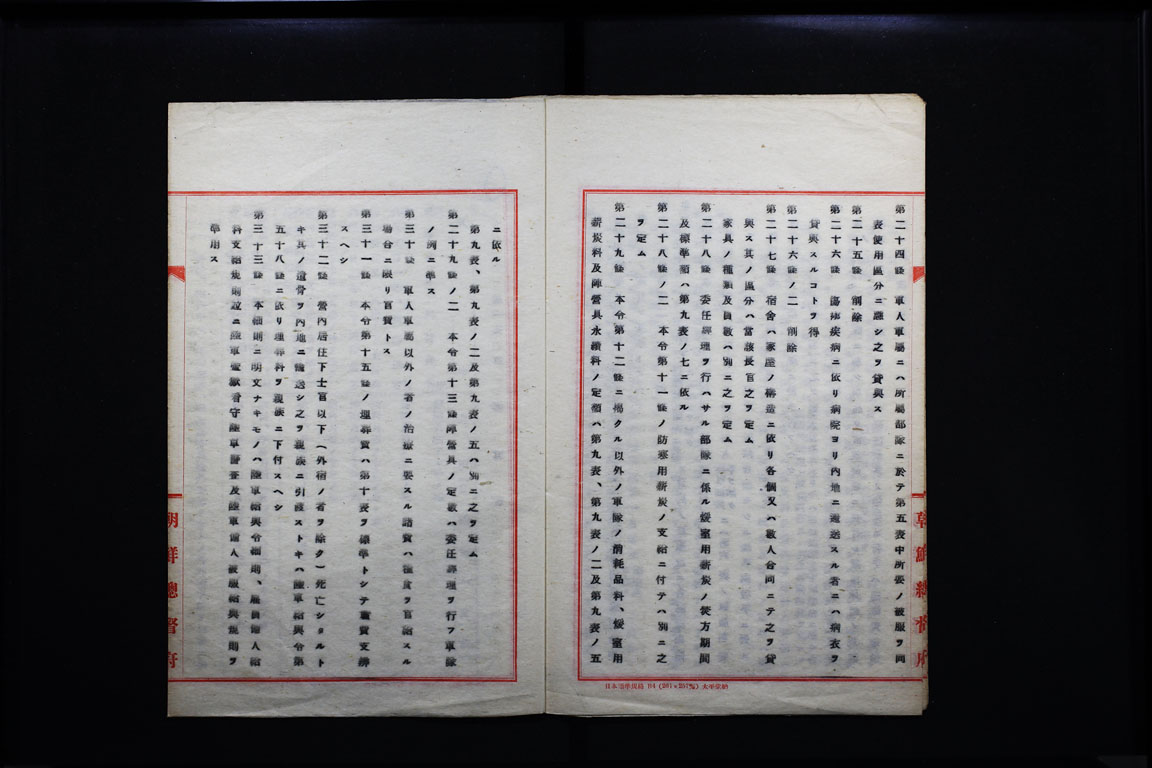 第二十四條　軍人軍屬ニハ所屬部隊ニ於テ第五表中所要ノ被服ヲ同
表使用區分ニ從シ之ヲ貸與ス
第二十五條　削除
第二十六條　傷痍疾病ニ依リ病院ヨリ內地ニ還送スル者ニハ病衣ヲ
貸與スルコトヲ得
第二十六條ノ二　削除
第二十七條　宿舍ハ家屋ノ構造ニ依リ各個又ハ數人合同ニテ之ヲ貸
與ス其ノ區分ハ當該長官之ヲ定ム
家具ノ種類及員數ハ別ニ之ヲ定ム
第二十八條　委任經理ヲ行ハサル部隊ニ係ル煖室用薪炭ノ焚方期間
及標準額ハ第九表ノ七ニ依ル
第二十八條ノ二　本令第十一條ノ防寒用薪炭ノ支給ニ付テハ別ニ之
ヲ定ム
第二十九條　本令第十二條ニ揭クル以外ノ軍隊ノ消耗品料、煖室用
薪炭料及陣營具永續料ノ定額ハ第九表、第九表ノ二及第九表ノ五
ニ依ル
第九表、第九表ノ二及第九表ノ五ハ別ニ之ヲ定ム
第二十九條ノ二　本令第十三條陣營具ノ定數ハ委任經理ヲ行フ軍隊
ノ例ニ準ス
第三十條　軍人軍屬以外ノ者ノ治療ニ要スル諸費ハ糧食ヲ官給スル
場合ニ限リ官費トス
第三十一條　本令第十五條ノ埋葬費ハ第十表ヲ標準トシテ實費支辨
スヘシ
第三十二條　營內居住下士官以下（外宿ノ者ヲ除ク）死亡シタルト
キ其ノ遺骨ヲ內地ニ輸送シ之ヲ親族ニ引渡ストキハ陸軍給與令第
五十八條ニ依リ埋葬料ヲ親族ニ下付スヘシ
第三十三條　本細則ニ明文ナキモノハ陸軍給與令細則、雇員傭人給
料支給規則竝ニ陸軍監獄看守陸軍警査及陸軍傭人被服給與規則ヲ
準用ス
朝鮮總督府
朝鮮總督府
日本標準規格 B4